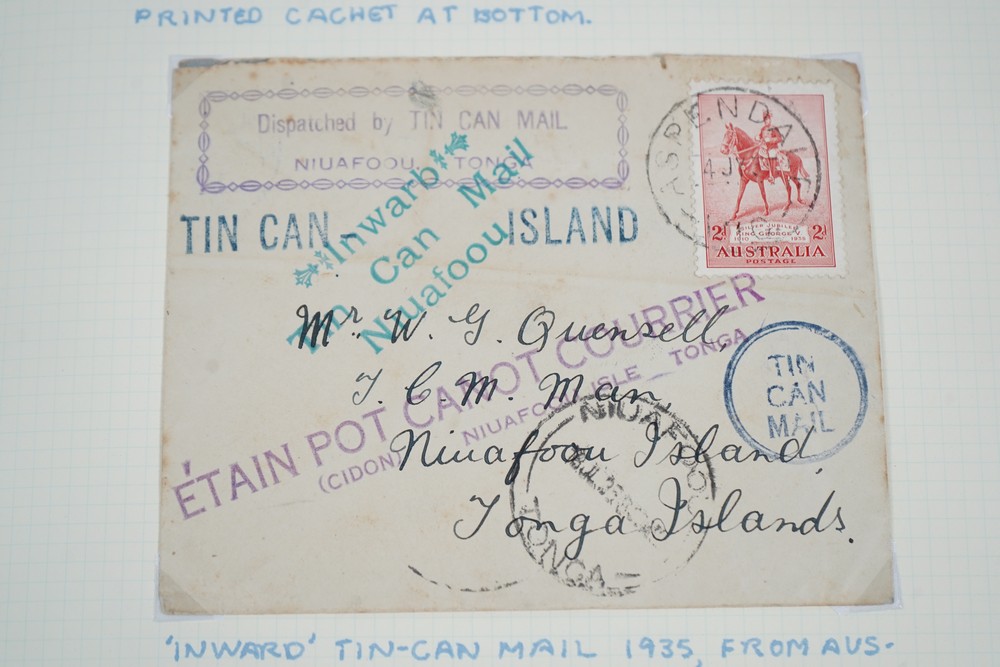 PRINTED CACHET AT BOTTOM.
Dispatched by TIN CAN MAIL
NIUAFOOU TONGA
TIN CAN - ISLAND
Inward
Tin Can Mail
Niuafoou
ASPENDALE
SILVER JUBILEE
KING GEORGE V
1910 1935
2d 2d
AUSTRALIA
POSTAGE
Mr. W. G. Quensell,
T. C. M. Man,
Niuafoou Island,
Tonga Islands.
ÉTAIN POT CANOT COURRIER
(CIDON) NIUAFOOU ISLE TONGA
TIN
CAN
MAIL
NIUAFOOU
TONGA
'INWARD' TIN-CAN MAIL 1935, FROM AUS-